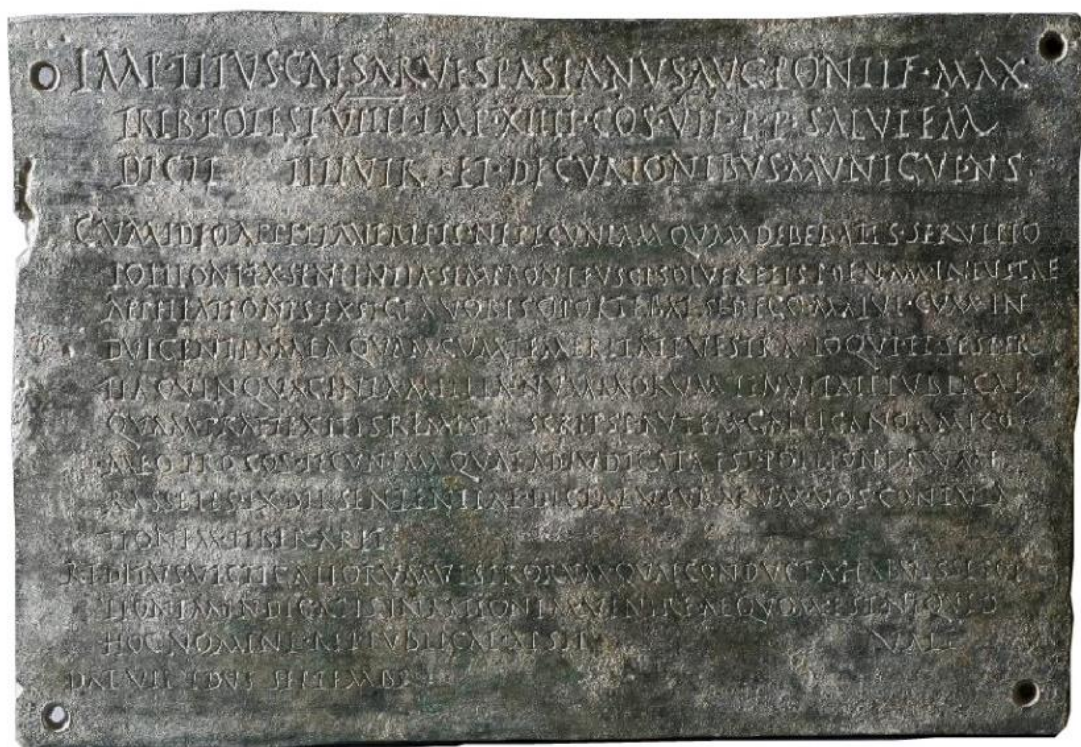 IMP·TITVS CAESAR VESPASIANVS AVG PONTIF·MAX
TRIB POTEST VIIII·IMP·XIIII·COS·VII·P·P·SALVTEM
DICIT IIIIVIR·ET·DECVRIONIBVS MVNIGVENS·
CVM IDEO APPELLAVERITIS NE PECVNIAM QVAM DEBEBATIS·SERVILIO
POLLIONI·EX·SENTENTIA·SEMPRONI FVSCI SOLVERETIS POENAM INIVSTAE
APPELLATIONIS EXSIGI A VOBIS OPORTEBAT SED EGO MALVI·CVM IN
DVLGENTIA MEA QVAM CVM TEMERITATE VESTRA LOQVI ET SESTER
TIA QVINQVAGINTA MILLIA NVMMORVM TENVITATI PVBLICAE
QVAM PRAETEXITIS REMISI SCRIPSI AVTEM GALLICANO AMICO
MEO PROCOS·PECVNIAM QVAE ADIVDICATA EST POLLIONI NVME
RASSETIS EX DIE SENTENTIAE DICTAE VSVRARVM VOS CONPVTA
TIONEM LIBERARET
REDITVS VECTIGALIORVM VESTRORVM QVAE CONDVCTA HABVISSE POL
LIONEM INDICATIS IN RATIONEM VENIRE AEQVOM EST NE QVID
HOC NOMINE REI PVBLICAE APSIT VALE
DAT VII IDVS SEPTEMBR